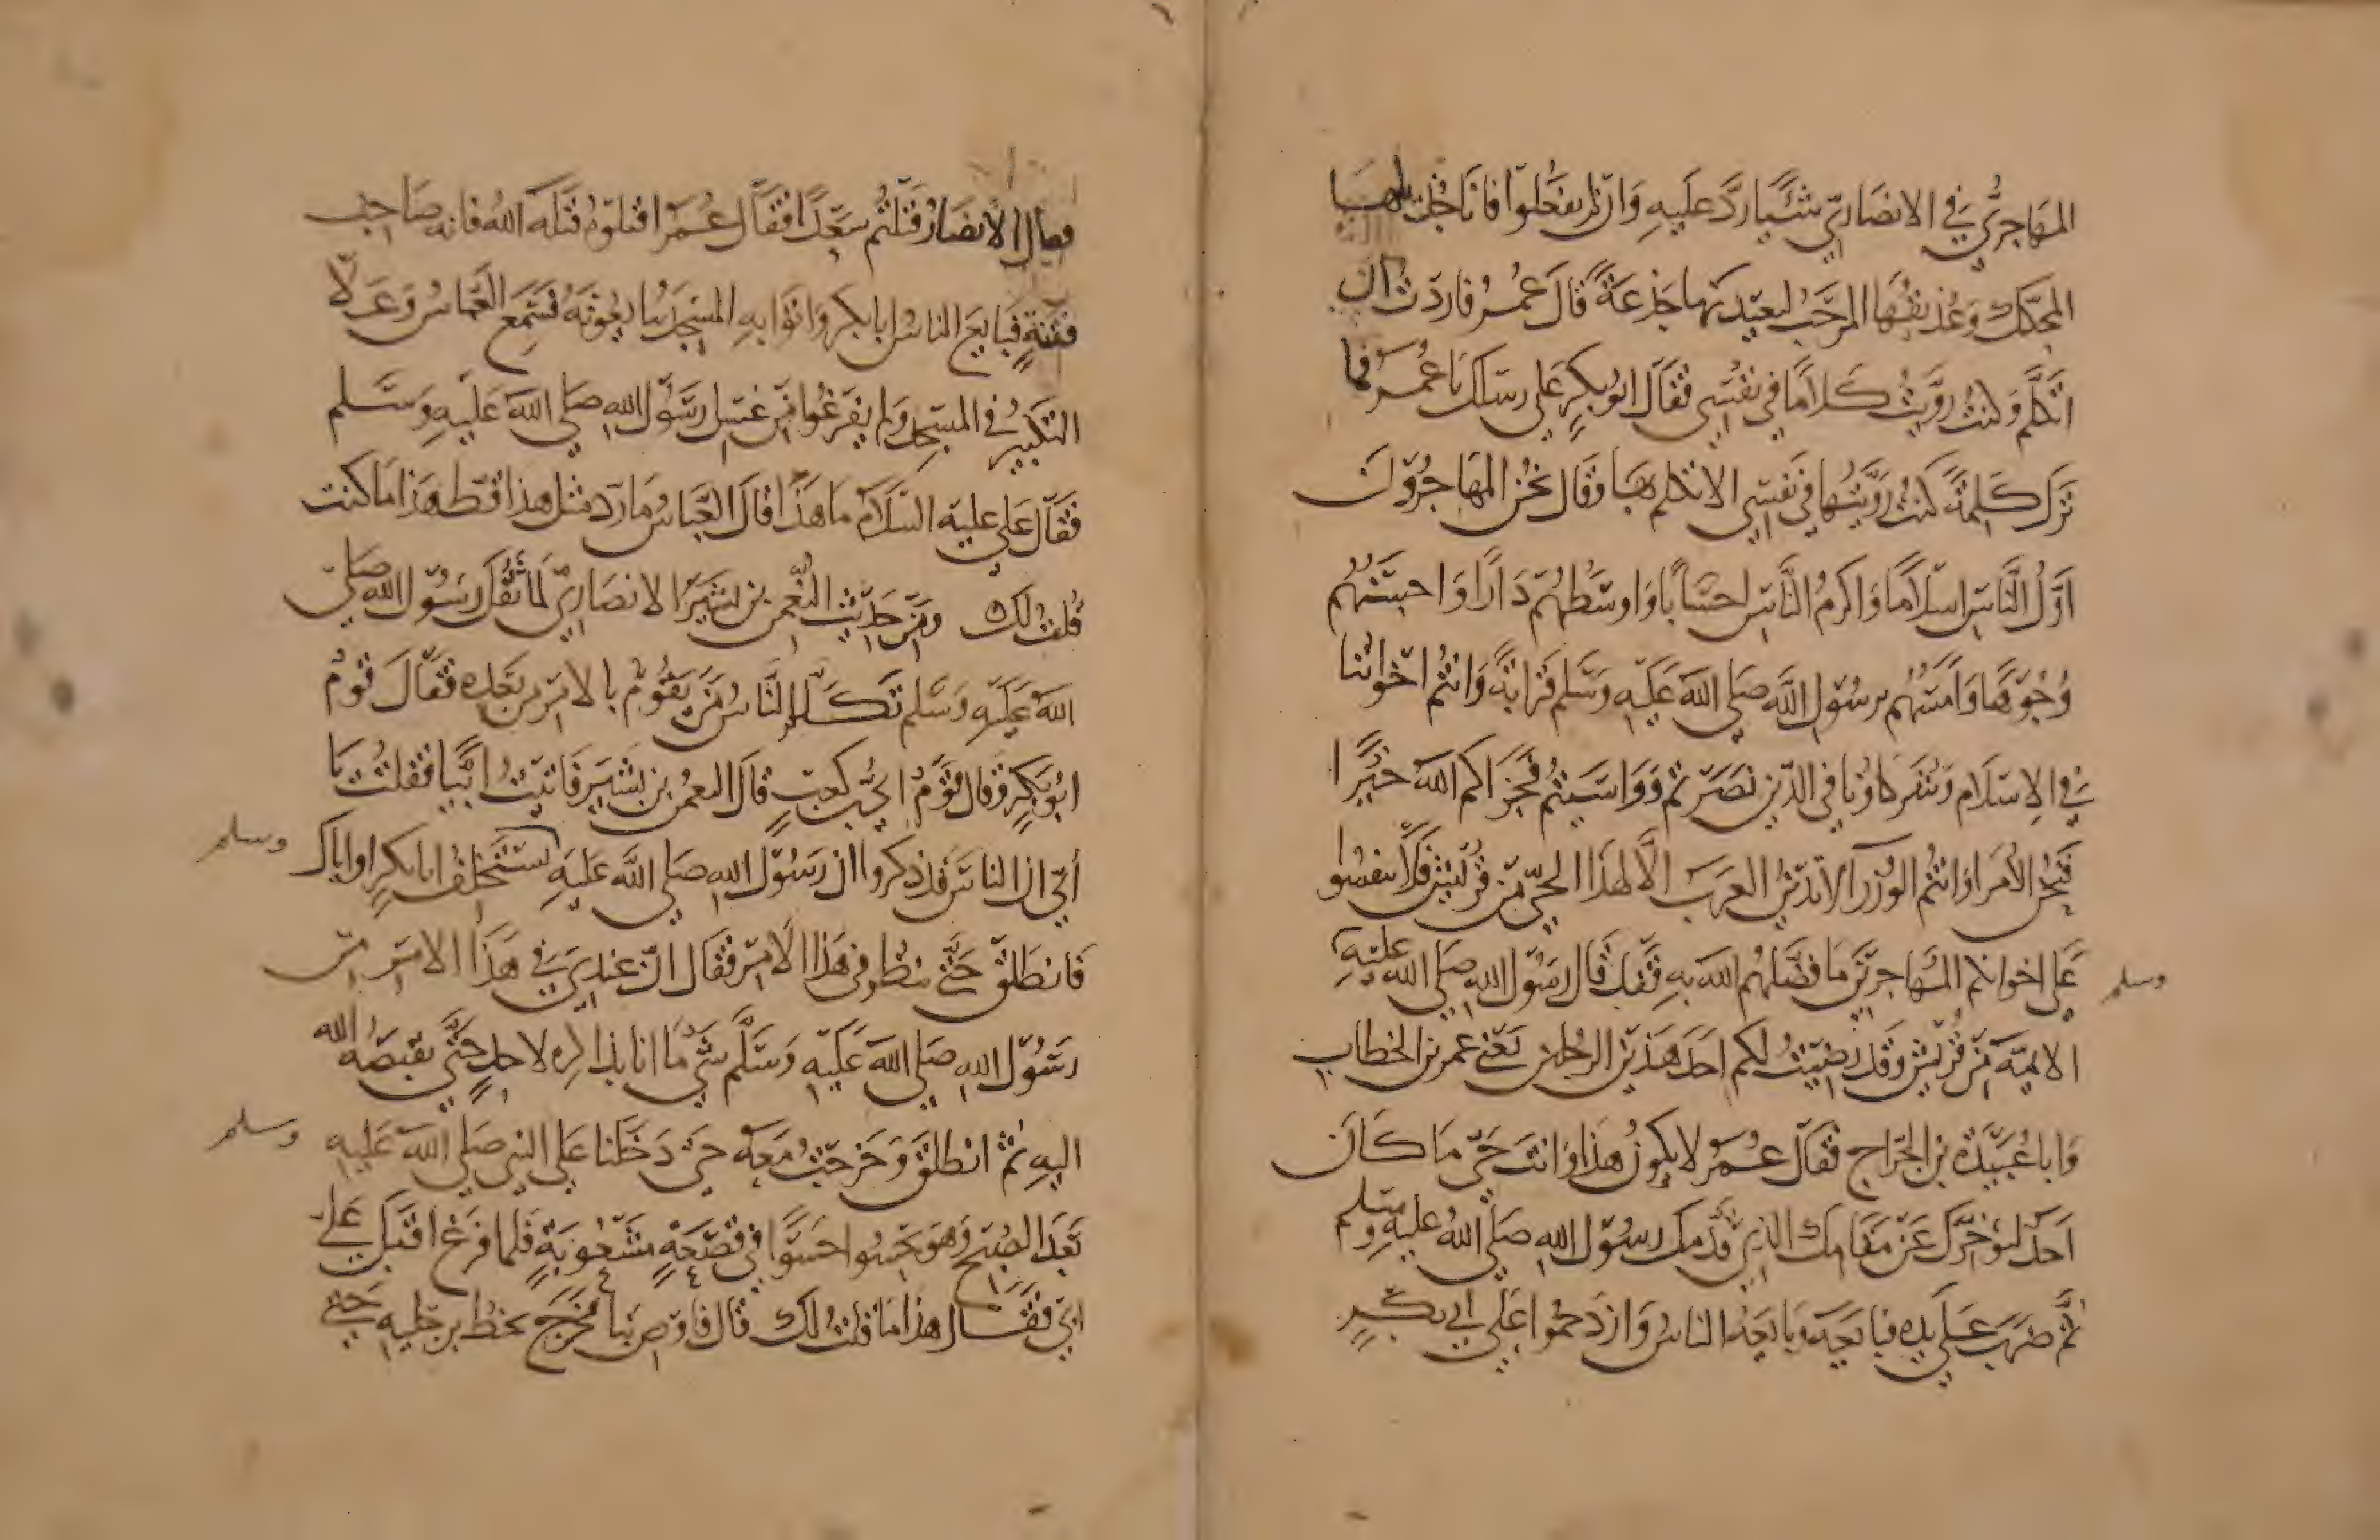 المهاجري في الانصاري شئيا رد عليه وان لم يفعلوا فانا جذيلها
المحكك وعذيقها المرجب لنعيدنها جذعة قال عمر فاردت ان
اتكلم وكنت رويت كلاما في نفسي فقال ابو بكر على رسلك يا عمر فما
ترك كلمة كنت رويتها في نفسي الا تكلم بها وقال نحن المهاجرون
اول الناس اسلاما واكرم الناس احسابا واوسطهم دارا واحسنهم
وجوها وامسهم برسول الله صلى الله عليه وسلم قرابة وانتم اخواننا
في الاسلام وشركاؤنا في الدين نصرتم وواسيتم فجزاكم الله خيرا
فنحن الامرا وانتم الوزرا لا تدين العرب الا لهذا الحي من قريش فلا تنفسوا
على اخوانكم المهاجرين ما فضلهم الله به فقد قال رسول الله صلى الله عليه
وسلم
الايمة من قريش وقد رضيت لكم احد هذين الرجلين يعني عمر بن الخطاب
وابا عبيدة بن الجراح فقال عمر لا يكون هذا وانت حي ما كان
احد ليؤخرك عن مقامك الذي قدمك رسول الله صلى الله عليه وسلم
ثم ضرب على يده فبايعه وبايعه الناس وازدحموا على ابي بكر
فقال الانصار قتلتم سعدا فقال عمر اقتلوه قتله الله فانه صاحب
فتنة فبايع الناس ابا بكر واتوا به المسجد يبايعونه فسمع العباس وعلا
التكبير في المسجد ولم يفرغوا من غسل رسول الله صلى الله عليه وسلم
فقال على عليه السلام ما هذا قال العباس ما رد مثل هذا قط هذا ما كنت
قلت لك ومن حديث النعمن بن بشير الانصاري لما ثقل رسول الله صلى
الله عليه وسلم تكلم الناس من يقوم بالامر من بعده فقال قوم
ابو بكر وقال قوم ابي بن كعب قال النعمن بن بشير فاتيت ابيا فقلت يا
ابي ان الناس قد ذكروا ان رسول الله صلى الله عليه يستخلف ابا بكر او اياك
وسلم
فانطلق حتى ننظر في هذا الامر فقال ان عندي في هذا الامر من
رسول الله صلى الله عليه وسلم شي ما انا بذاكره لاحد حتى يقبضه الله
اليه ثم انطلق وخرجت معه حتى دخلنا على النبي صلى الله عليه
وسلم
بعد الصبح وهو يحسوا حسوا في قصعة مشعوبة فلما فرغ اقبل على
ابي فقال هذا ما قلت لك قال فاوص بنا فخرج يخط برجليه حتى